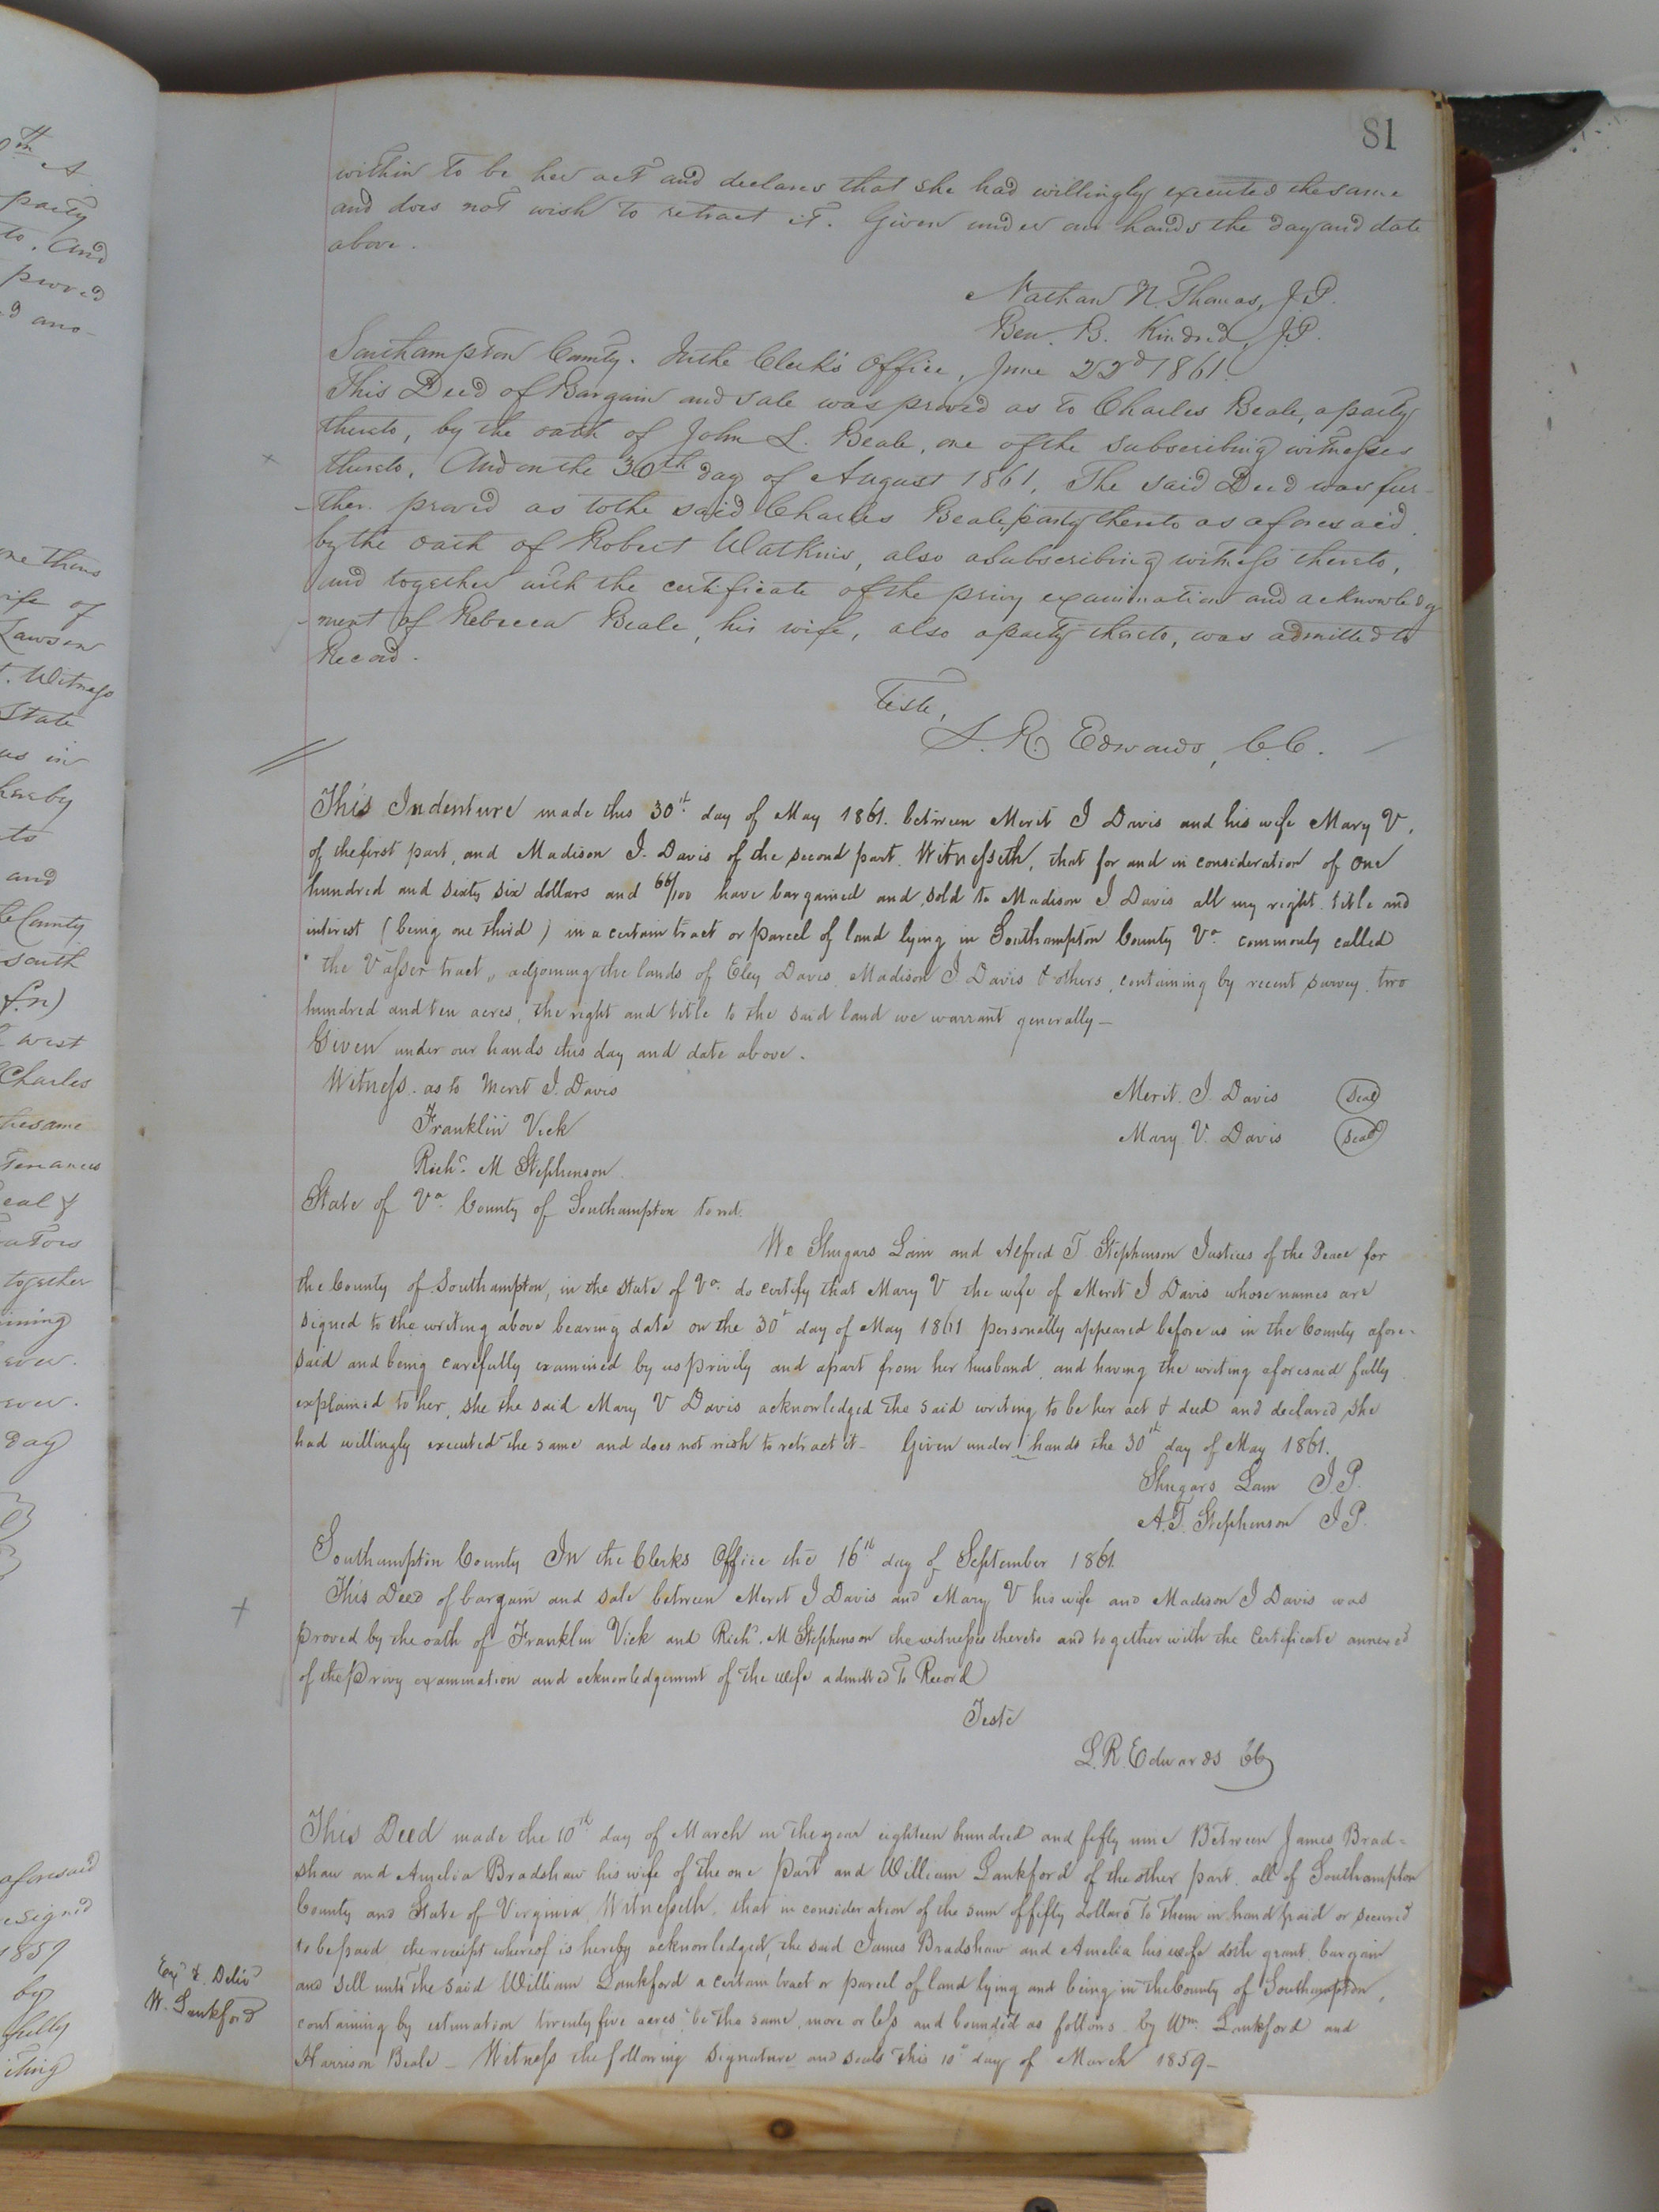 81
within to be her act and declares that she had willingly executed the same
and does not wish to retract it. Given under our hands the day and date
above.
Nathan N. Thomas, J.P.
Ben. B. Kindred, J.P.
Southampton County. In the Clerk's Office, June 22d 1861.
This Deed of Bargain and sale was proved as to Charles Beale, a party
thereto, by the oath of John L. Beale, one of the subscribing witnesses
thereto. And on the 30th day of August 1861, The said Deed was fur-
-ther proved as to the said Charles Beale, party thereto as aforesaid,
by the oath of Robert Watkins, also a subscribing witness thereto,
and together with the certificate of the privy examination and acknowledg
-ment of Rebecca Beale, his wife, also a party thereto, was admitted to
Record.
Teste,
L. R. Edwards, C.C.
This Indenture made this 30th day of May 1861. between Merit I Davis and his wife Mary V,
of the first part, and Madison I. Davis of the second part. Witnesseth, that for and in consideration of One
hundred and sixty six dollars and 66/100 have bargained and sold to Madison I Davis all my right title and
interest (being one third) in a certain tract or parcel of land lying in Southampton County Va. commonly called
"the Vasser tract" adjoining the lands of Eley Davis, Madison I Davis & others, containing by recent survey, two
hundred and ten acres, the right and title to the said land we warrant generally—
Given under our hands this day and date above.
Witness. as to Merit I. Davis
Merit. I. Davis Seal
Franklin Vick
Mary V. Davis Seal
Richd. M Stephenson
State of Va. County of Southampton towd.
We Shugars Lain and Alfred T Stephenson Justices of the Peace for
the County of Southampton, in the State of Va. do certify that Mary V the wife of Merit I Davis whose names are
signed to the writing above bearing date on the 30t day of May 1861 personally appeared before us in the County afore-
said and being carefully examined by us privily and apart from her husband, and having the writing aforesaid fully
explained to her, she the said Mary V Davis acknowledged the said writing to be her act & deed and declared she
had willingly executed the same and does not wish to retract it— Given under hands the 30th day of May 1861.
Shugars Lain J.P.
A.T. Stephenson J P.
Southampton County In the Clerks Office the 16th day of September 1861.
This Deed of bargain and sale between Merit I Davis and Mary V his wife and Madison I Davis was
proved by the oath of Franklin Vick and Richd. M Stephenson the witnesses thereto and together with the Certificate annexed
of the Privy examination and acknowledgement of the wife admitted To Record
Teste
L.R. Edwards Clk
This Deed made the 10th day of March in the year eighteen hundred and fifty nine Between James Brad-
shaw and Amelia Bradshaw his wife of the one part and William Lankford of the other part, all of Southampton
County and State of Virginia Witnesseth, that in consideration of the sum of fifty dollars to them in hand paid or secured
to be paid the receipt whereof is hereby acknowledged, the said James Bradshaw and Amelia his wife doth grant, bargain
and sell unto the said William Lankford a certain tract or parcel of land lying and being in the County of Southampton,
containing by estimation twenty five acres, be the same more or less and bounded as follows by Wm. Lankford and
Harrison Beale — Witness the following signature and seals this 10th day of March 1859—
Exd & Delivd
W. Lankford